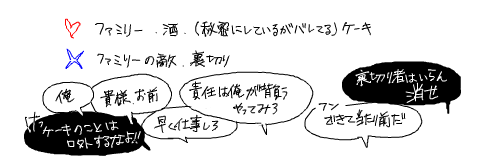 ファミリー．酒．(秘密にしているがバレてる)ケーキ
ファミリーの敵．裏切り
俺
貴様．お前
責任は俺が背負う
やってみろ
裏切り者はいらん
消せ
ケーキのことは
口外するなよ!!
早く仕事しろ
フン
できて当たり前だ